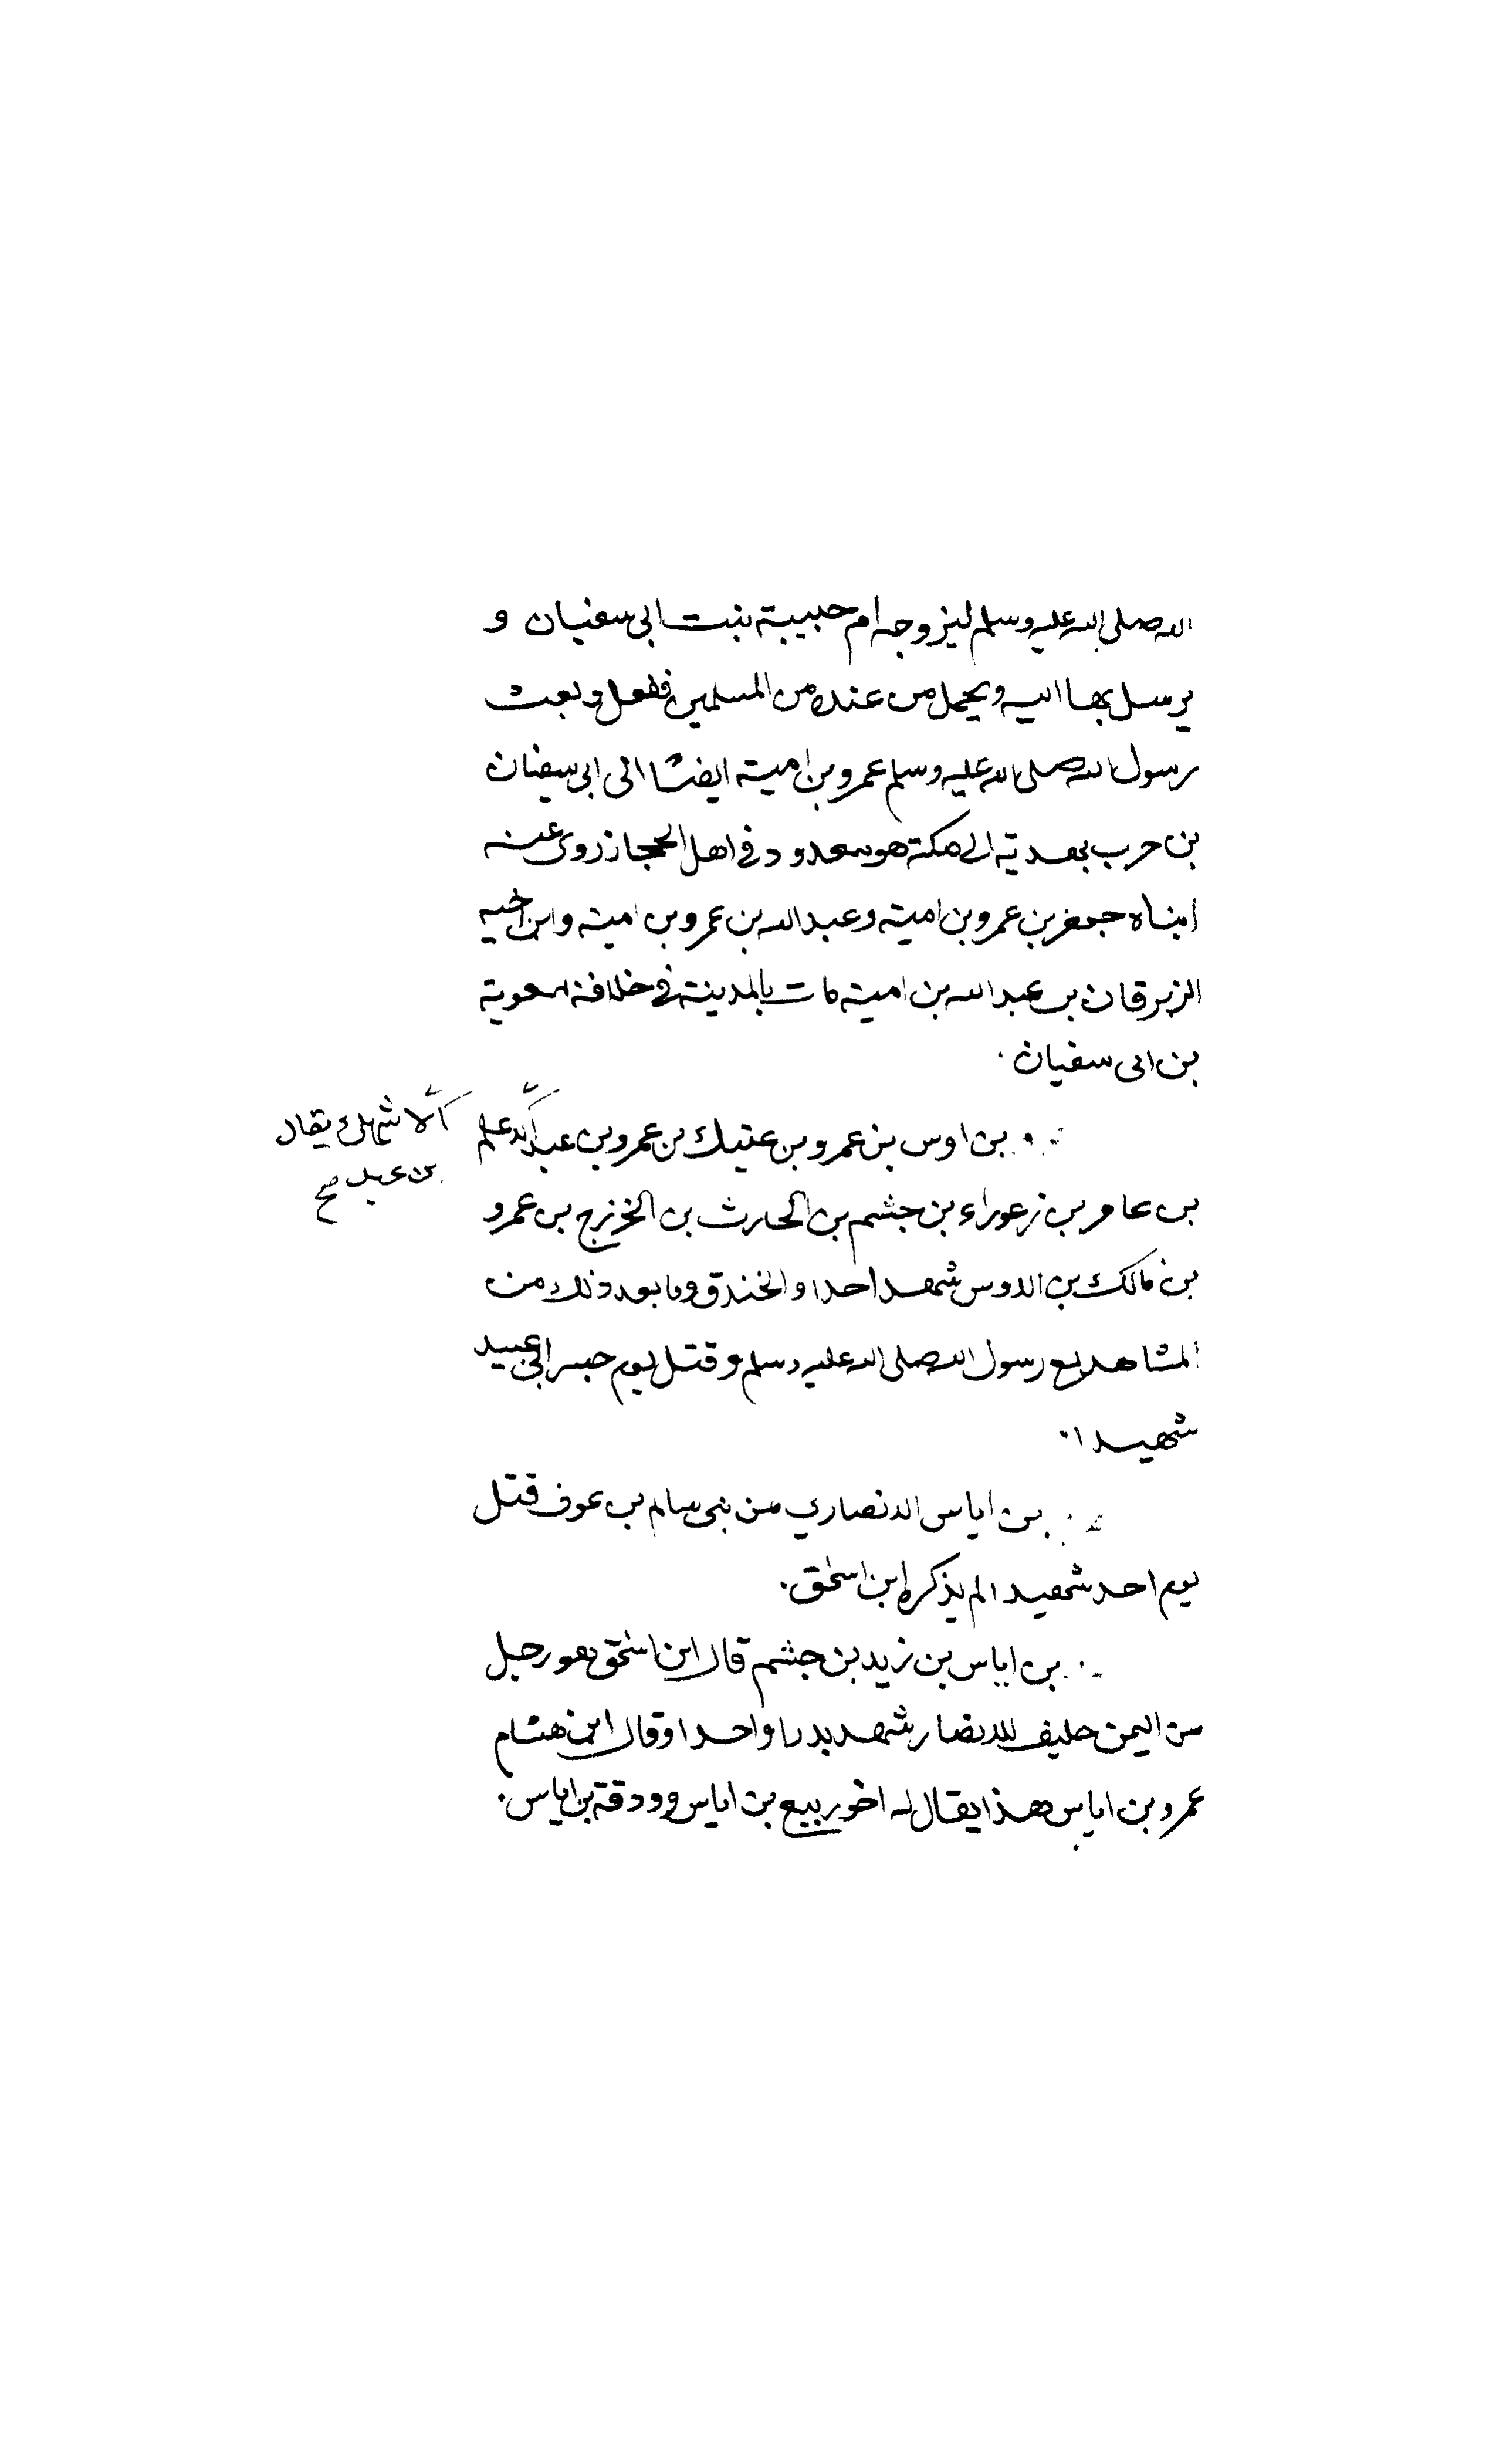 الله صلى الله عليه وسلم ليزوجه ام حبيبة بنت ابى سفيان و
يرسل بها اليه ويحمل من عنده من المسلمين ففعل وبعث
رسول الله صلى الله عليه وسلم عمرو بن امية ايضا الى ابى سفيان
بن حرب بهدية الى مكة هو معدود في اهل الحجاز روى عنه
ابناه جعفر بن عمرو بن امية وعبد الله بن عمرو بن امية وابن اخيه
الزبرقان بن عبد الله بن امية مات بالمدينة في خلافة معوية
بن ابى سفيان .
بن اوس بن عمرو بن عتيك بن عمرو بن عبد الاعلم
الاشهل ويقال
بن عبد صح
بن عامر بن زعوراء بن جشم بن الحارث بن الخزرج بن عمرو
بن مالك بن الاوس شهد احدا والخندق وما بعد ذلك من
المشاهد مع رسول الله صلى الله عليه وسلم وقتل يوم جسر ابى عبيد
شهيدا .
بن اياس الانصاري من بنى سالم بن عوف قتل
يوم احد شهيدا لم يذكره ابن اسحق .
بن اياس بن زيد بن جشم قال ابن اسحق هو رجل
من اليمن حليف للانصار شهد بدرا واحدا وقال ابن هشام
عمرو بن اياس هذا يقال له اخو ربيع بن اياس وودقة بن اياس .